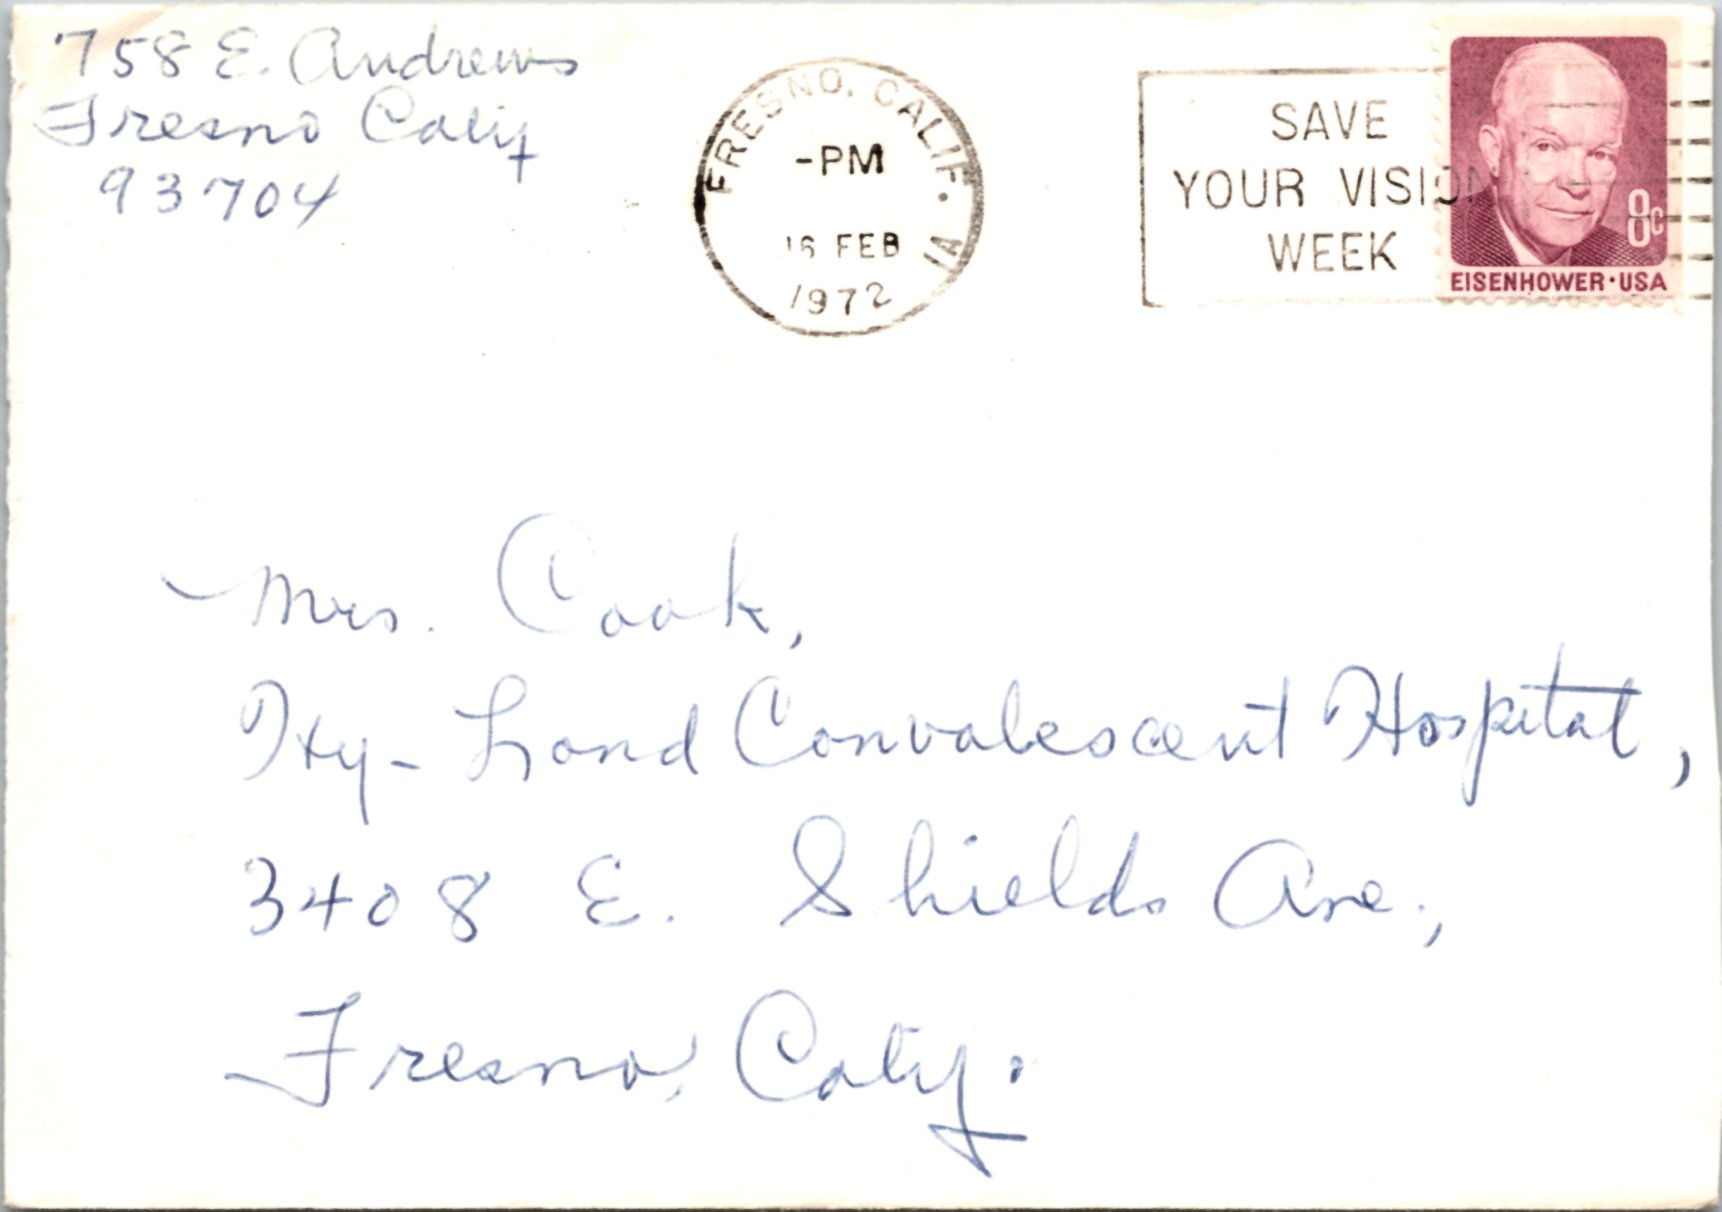 758 E. Andrews
Fresno Calif
93704
FRESNO, CALIF. 1A
-PM
16 FEB
1972
SAVE
YOUR VISION
WEEK
8c
EISENHOWER·USA
Mrs. Cook,
Hy-Lond Convalescent Hospital,
3408 E. Shields Ave.,
Fresno, Calif.